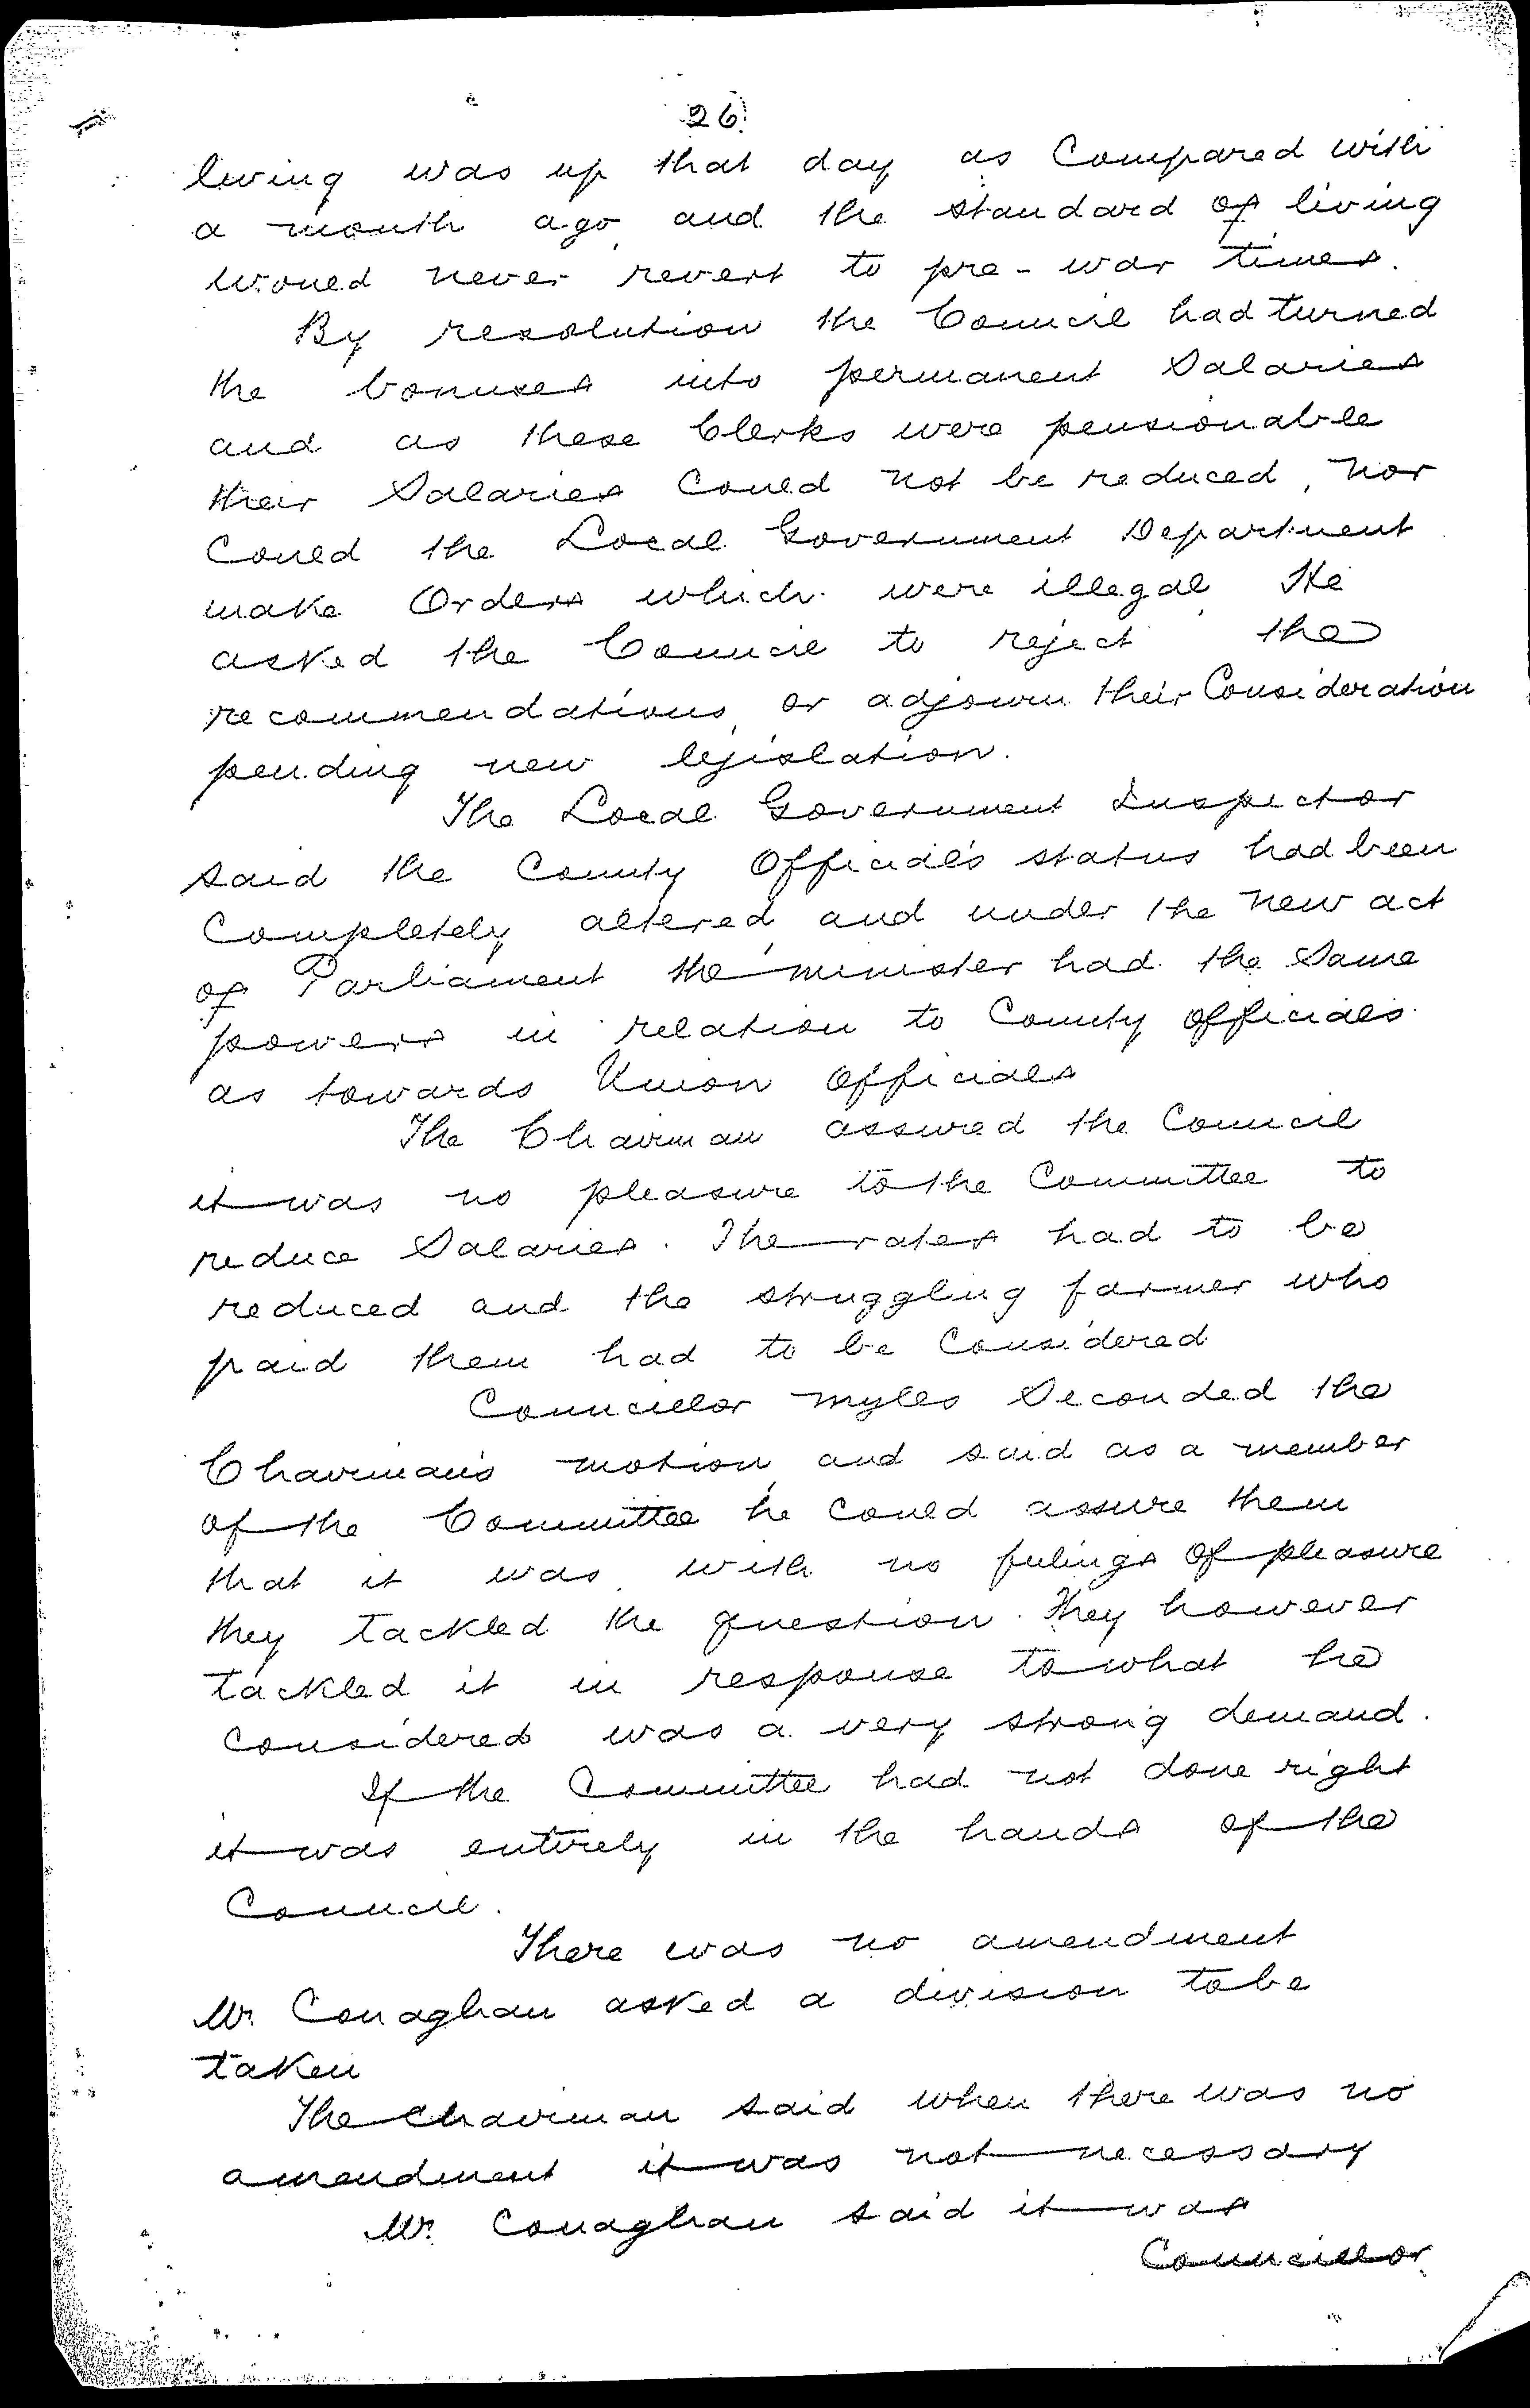 26
living was up that day as Compared with
a month ago, and the standard of living
would never revert to pre-war times.
By resolution the Council had turned
the bonuses into permanent Salaries
and as these Clerks were pensionable
their Salaries Could not be reduced, nor
Could the Local Government Department
make Orders which were illegal. He
asked the Council to reject the
recommendations, or adjourn their Consideration
pending new legislation.
The Local Government Inspector
said the County Official's status had been
Completely altered, and under the new act
of Parliament the minister had the Same
powers in relation to County officials
as towards Union Officials
The Chairman assured the Council
it was no pleasure to the Committee to
reduce Salaries. The rates had to be
reduced and the struggling farmer who
paid them had to be Considered
Councillor Myles Seconded the
Chairman's motion, and said as a member
of the Committee he Could assure them
that it was with no feelings of pleasure
they tackled the question. They however
tackled it in response to what he
Considered was a very strong demand.
If the Committee had not done right
it was entirely in the hands of the
Council.
There was no amendment
Mr. Conaghan asked a division to be
taken
The Chairman said when there was no
amendment it was not necessary
Mr. Conaghan said it was
Councillor